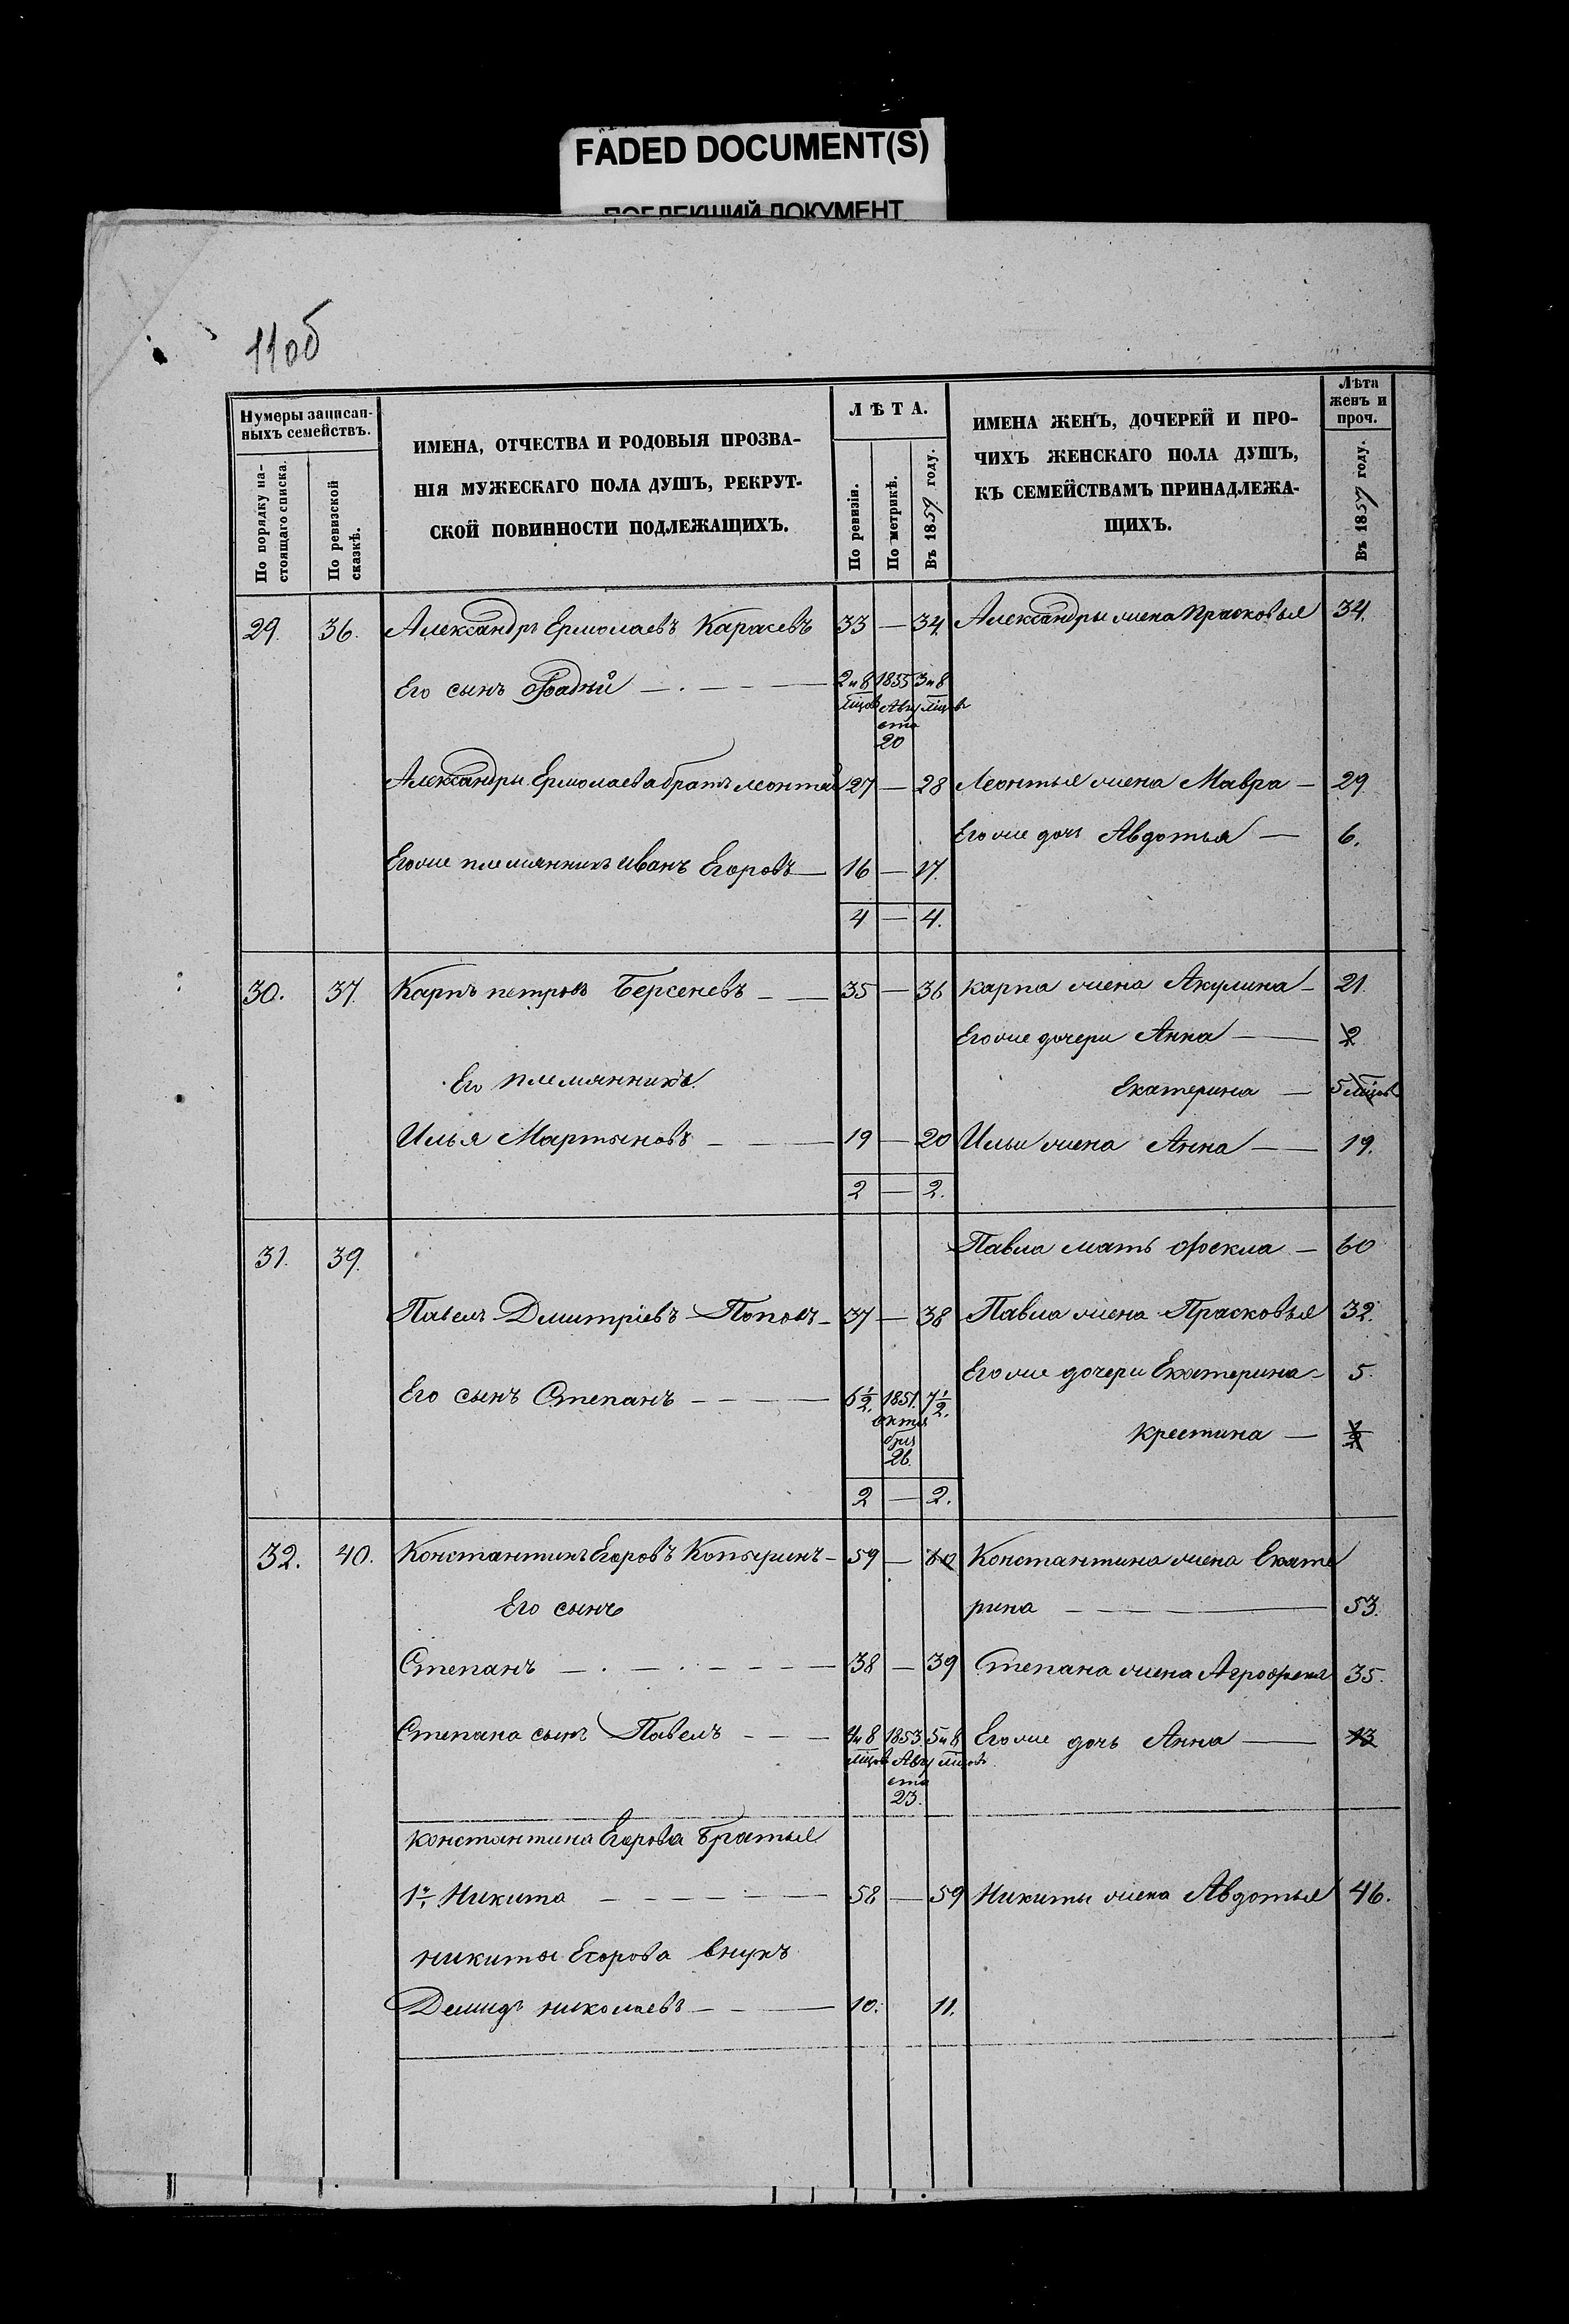 FADED DOCUMENT(S)
ПОБЛЕКШИЙ ДОКУМЕНТ
11об
Нумеры записан-
ныхъ семействъ.
По порядку на-
стоящаго списка.
По ревизской
сказкѣ.
ИМЕНА, ОТЧЕСТВА И РОДОВЫЯ ПРОЗВА-
НІЯ МУЖЕСКАГО ПОЛА ДУШЪ, РЕКРУТ-
СКОЙ ПОВИННОСТИ ПОДЛЕЖАЩИХЪ.
ЛѢТА.
По ревизіи.
По метрикѣ.
Въ 1859 году.
ИМЕНА ЖЕНЪ, ДОЧЕРЕЙ И ПРО-
ЧИХЪ ЖЕНСКАГО ПОЛА ДУШЪ,
КЪ СЕМЕЙСТВАМЪ ПРИНАДЛЕЖА-
ЩИХЪ.
Лѣта
женъ и
проч.
Въ 1859 году.
29. 36. Александръ Ермолаевъ Карасевъ 33 — 34 Александры жена Прасковья 34.
Его сынъ Фадѣй — 2 и 8 1855 3 и 8
мцовъ Авгу мцовъ
ста
20
Александры Ермолаева братъ леонтій 27 — 28 Леонтья жена Мавра — 29
Его же дочь Авдотья — 6.
Его же племянникъ иванъ Егоровъ — 16 — 17.
4 — 4.
30. 37. Карпъ петровъ Берсеневъ — 35 — 36 карпа жена Акулина — 21.
Его же дочери Анна — 2
Его племянникъ
Екатерина — 5 мцовъ
Илья Мартыновъ — 19 — 20 Ильи жена Анна — 19.
2 — 2.
31. 39. Павла мать Фекла — 60
Павелъ Дмитріевъ Поповъ — 37 — 38 Павла жена Прасковья 32.
Его же дочери Екатерина — 5.
Его сынъ Степанъ — 6½. 1851. 7½.
октя
бря
26.
крестина —
2 — 2.
32. 40. Константинъ Егоровъ Копыринъ — 59 — 60 Константина жена Екате
Его сынъ рина — 53.
Степанъ — 38 — 39 Степана жена Агрофена 35.
Степана сынъ Павелъ — 4 и 8 1853. 5 и 8 Его же дочь Анна — 13
мцовъ Авгу мцовъ
ста
23.
константина Егорова братья
1й Никита — 58 — 59 Никиты жена Авдотья 46.
никиты Егорова внукъ
Демидъ николаевъ — 10. 11.